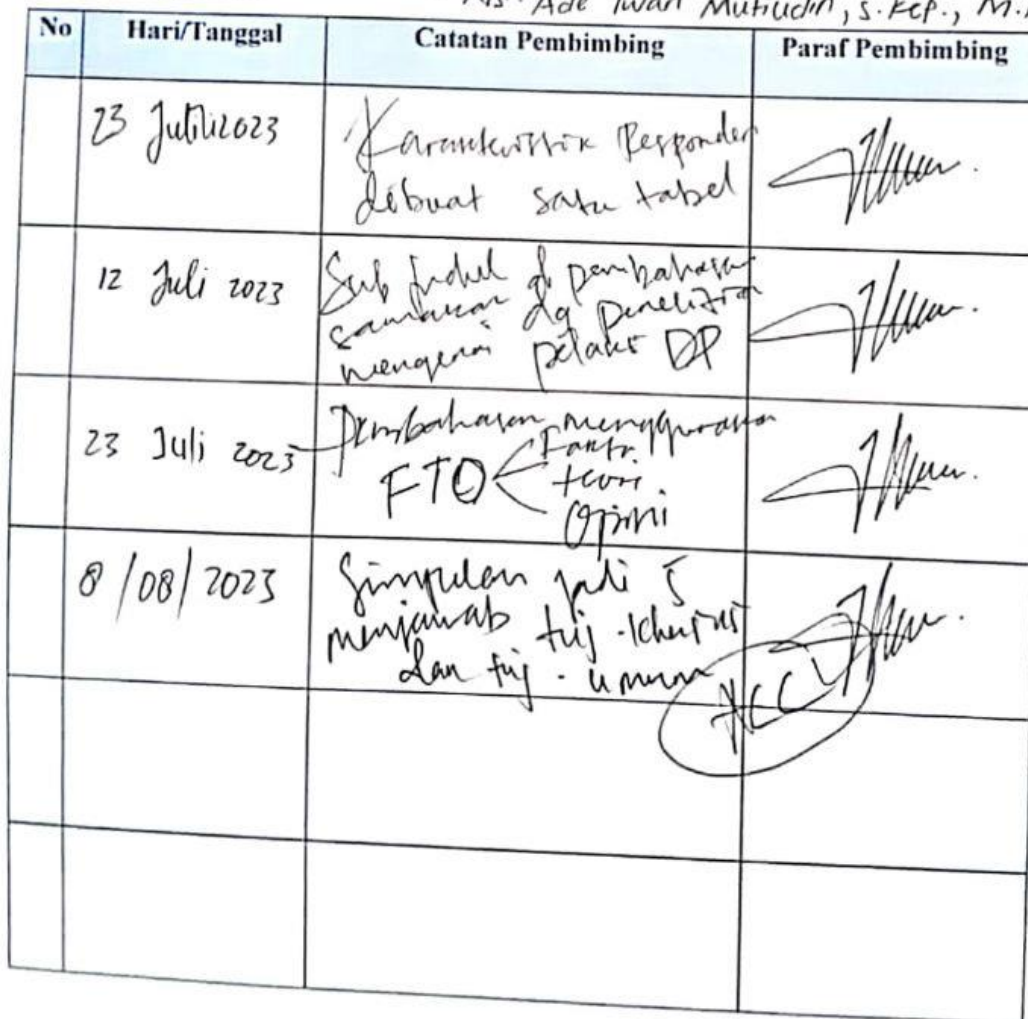 Ns. Ade Iwan Mutiudin, S.Kep., M.
No Hari/Tanggal Catatan Pembimbing Paraf Pembimbing
23 Juli 2023 Karakteristik Responden
dibuat satu tabel
12 Juli 2023 Sub Judul di pembahasan
samakan dg penelitian
mengenai DP
23 Juli 2023 Pembahasan menggunakan
FTO Fakta
teori
Opini
8/08/2023 Simpulan jadi 5
menjawab tuj. khusus
dan tuj. umum
ACC